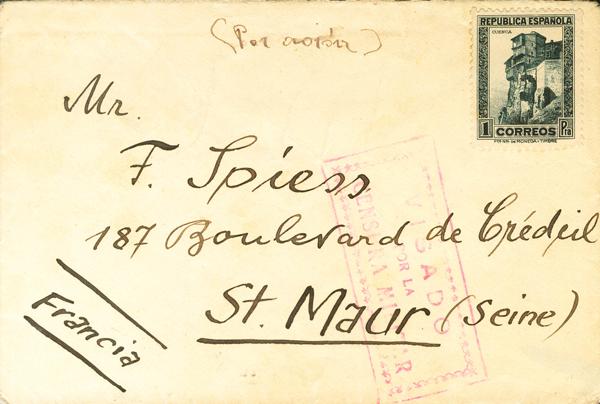 (Por avión)
REPUBLICA ESPAÑOLA
CUENCA
1 CORREOS Pta
FCA-NAL DE MONEDA-TIMBRE
Mr.
F. Spiess
187 Boulevard de Crédeil
St. Maur (Seine)
Francia
VISADO
POR LA
CENSURA MILITAR